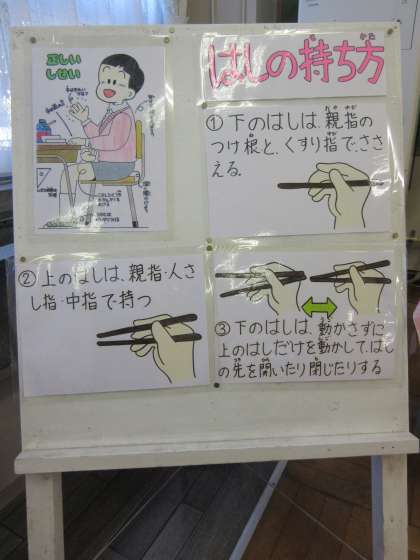 正しい
しせい
はしの持ち方
①下のはしは、親指の
つけ根と、くすり指で、ささ
える。
②上のはしは、親指・人さ
し指・中指で持つ
③下のはしは、動かさずに
上のはしだけを動かして、はし
の先を開いたり閉じたりする